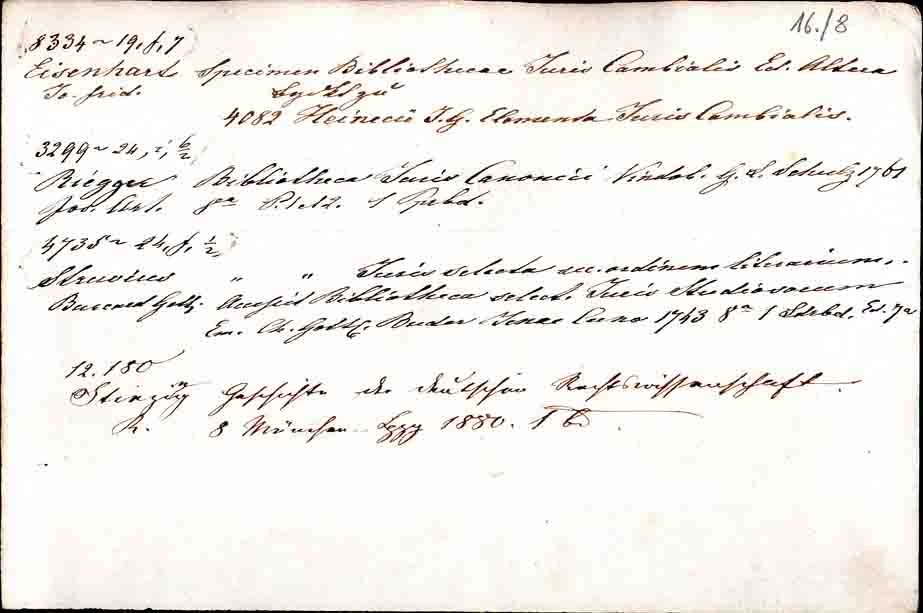 16./8
8334 ~ 19, f, 7
Eisenhart Specimen Bibliothecae Juris Cambialis Ed. Altera
Jo. Frid. zu
4082 Heinecii I. G. Elementa Juris Cambialis.
3299 ~ 24, i, 6/2
Riegger Bibliotheca Juris Canonici Vindob. G. L. Schulz 1761
Jos. Ant. 8º P. 1 et 2. 1 Ppbd.
4735 ~ 24, f, 1/2,
Struvius " " Juris selecta sec. ordinem literarium,
Burcard Gotth. Bibliotheca select. Juris Studiosorum
Em. Ch. Gottl. Buder Jenae Cuno 1743 8º 1 Ed. 7a
12.180
Stinzing Geschichte der deutschen Rechtswissenschaft.
R. 8 München Lpzg 1880. 1 Bd.